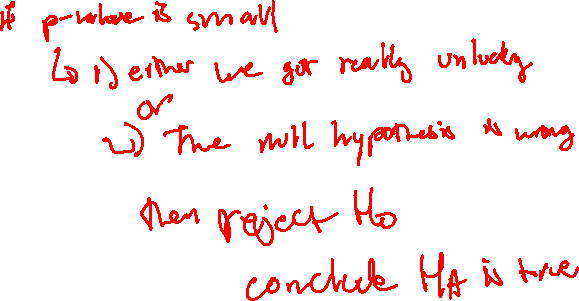 If p-value is small
↳ 1) either we got really unlucky
or
2) The null hypothesis is wrong
then reject H0
conclude HA is true